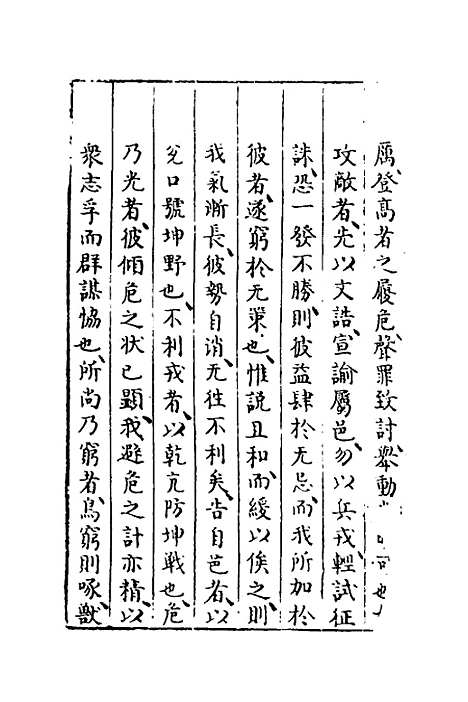 厲、登高者之履危、聲罪致討、舉動也
攻敵者、先以文誥、宣諭屬邑、勿以兵戎、輕試征
誅、恐一發不勝、則彼益肆於无忌、而我所加於
彼者、遂窮於无業也、惟說且和、而緩以俟之、則
我氣漸長、彼勢自消、无往不利矣、告自邑者、以
兌口號坤野也、不利戎者、以乾亢防坤戰也、危
乃光者、彼傾危之狀已顯、我避危之計亦精、以
衆志孚而群謀協也、所尚乃窮者、鳥窮則啄、獸